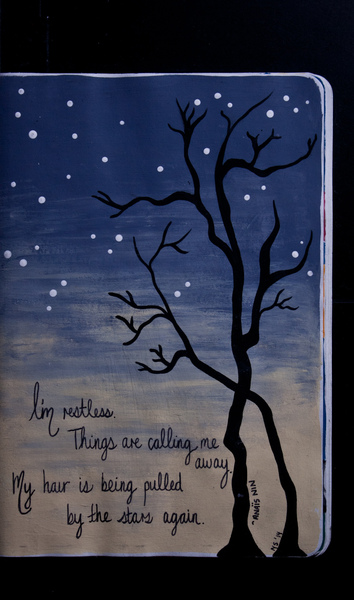 I'm restless.
Things are calling me
away.
My hair is being pulled
by the stars again.
~ANAÏS NIN
M.S. '19